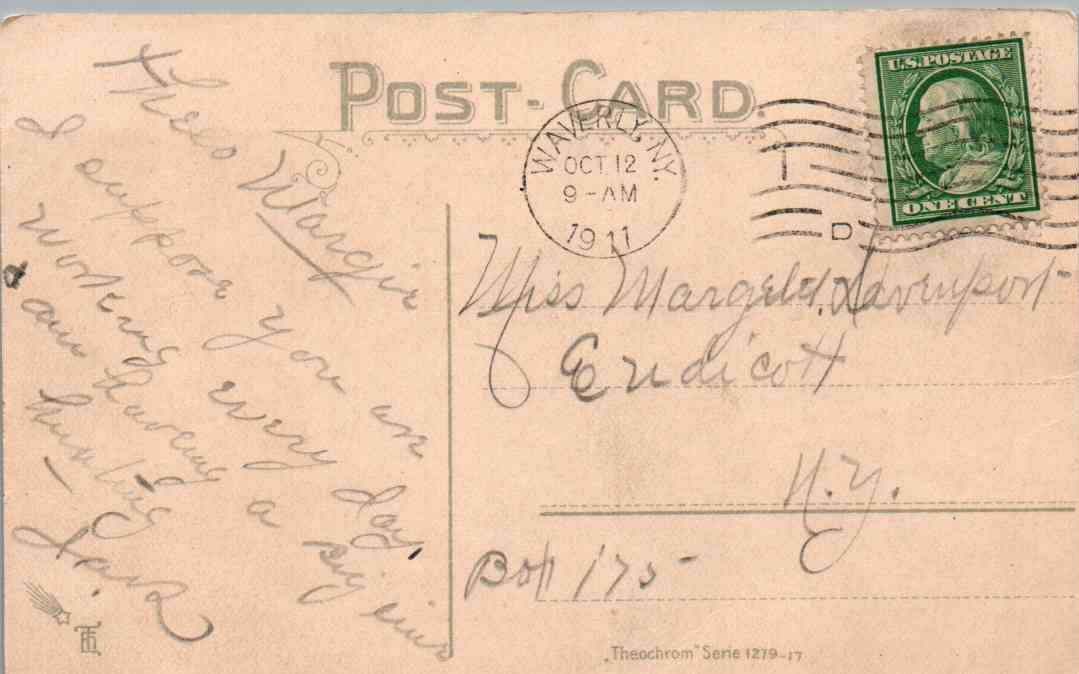 POST-CARD
U.S. POSTAGE
ONE CENT
WAVERLY, N.Y.
OCT 12
9-AM
1911
D
Hello Margie
I suppose you are
working every day,
am having a big time
hunting
Miss Margelet Davenport
Endicott
N.Y.
Box 175
„Theochrom" Serie 1279-17